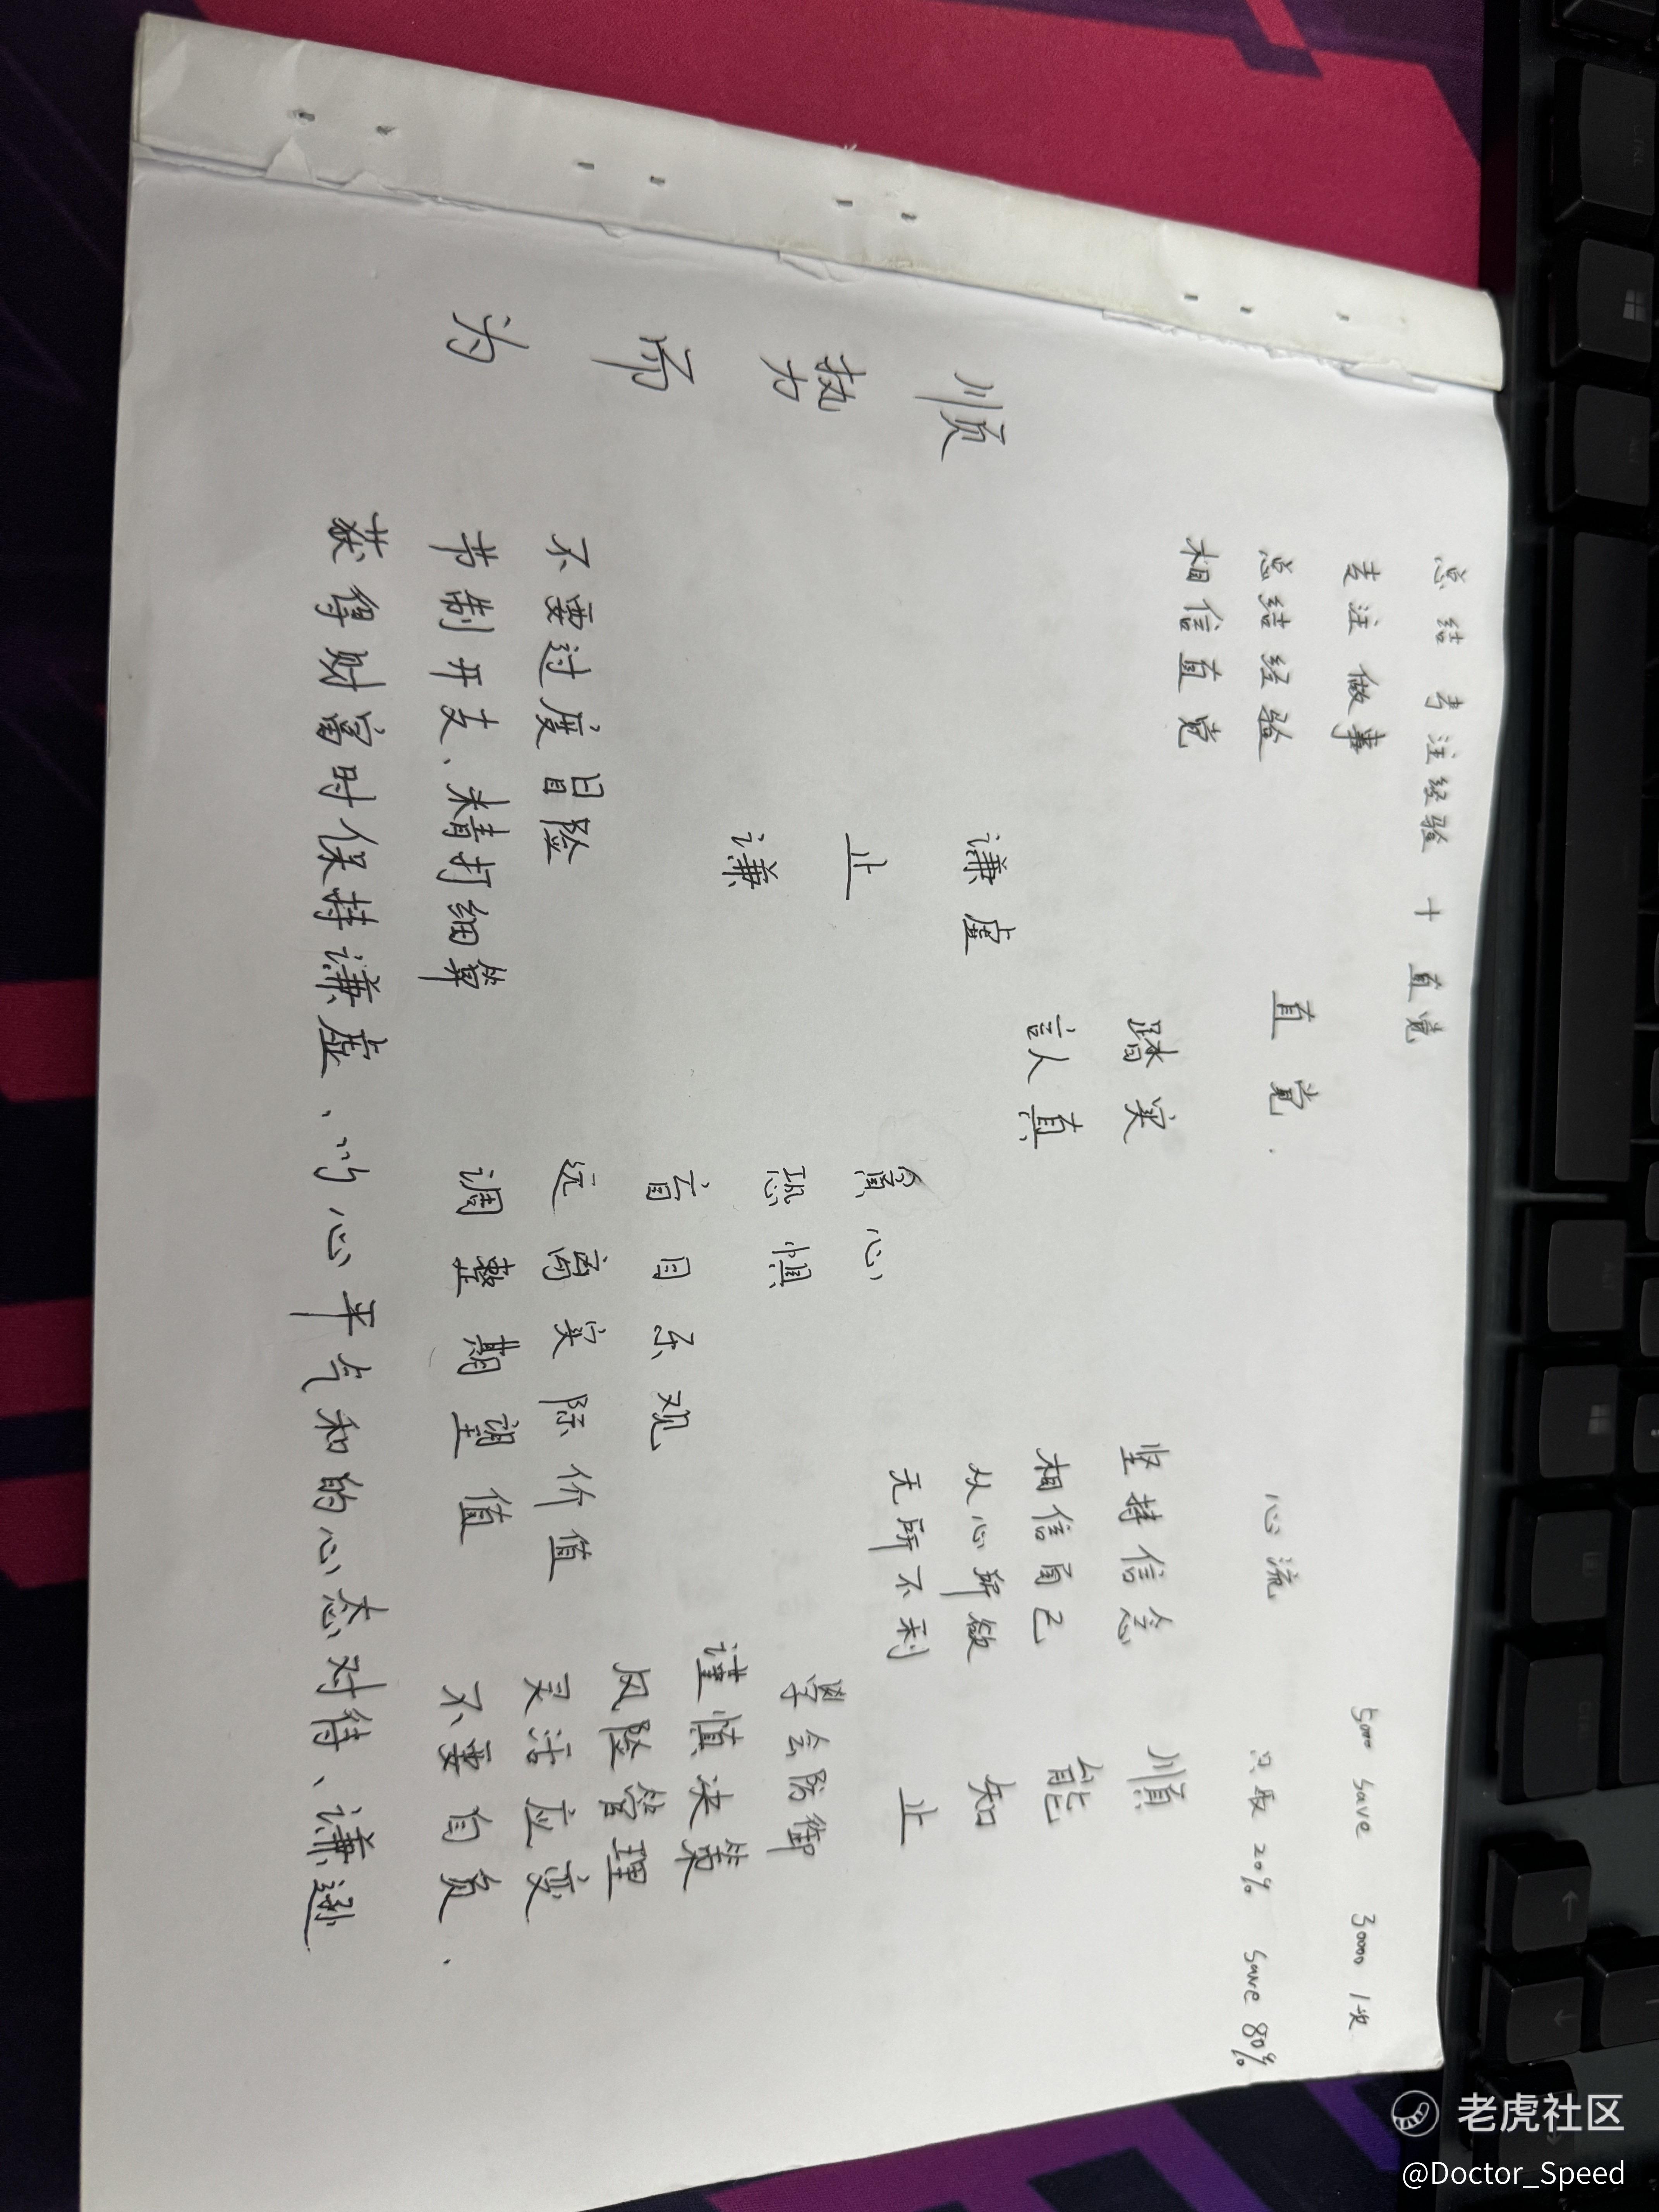 总结 专注经验 + 直觉
专注做事
总结经验
相信直觉
5000 save 30000 1次
只取 20% save 80%
直觉.
心流
踏实
认真
坚持信念
相信自己
从心所欲
无所不利
顺
能
知
止
顺
势
而
为
谦虚
止
谦
贪心
恐惧
盲目乐观
远离实际价值
调整期望值
学会防御
谨慎决策
风险管理
灵活应变
不要自负.
不要过度冒险
节制开支、精打细算
获得财富时保持谦虚、以心平气和的心态对待、谦逊
老虎社区
@Doctor_Speed